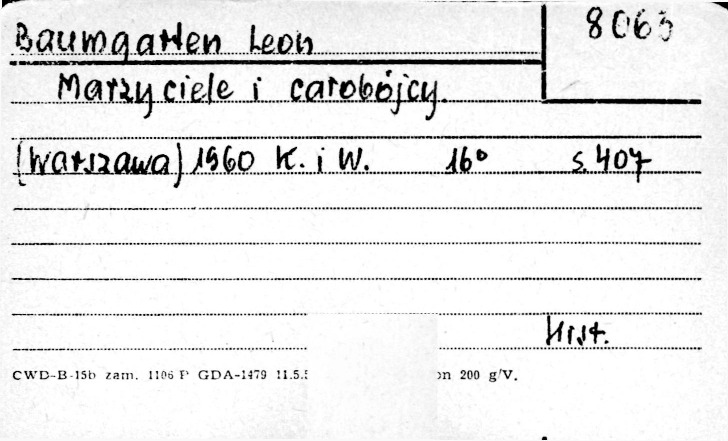 Baumgarten Leon
8063
Marzyciele i carobójcy.
(Warszawa) 1960 K. i W. 16° s. 407
Hist.
CWD-B-15b zam. 1106 P GDA-1479 11.5.5 on 200 g/V.